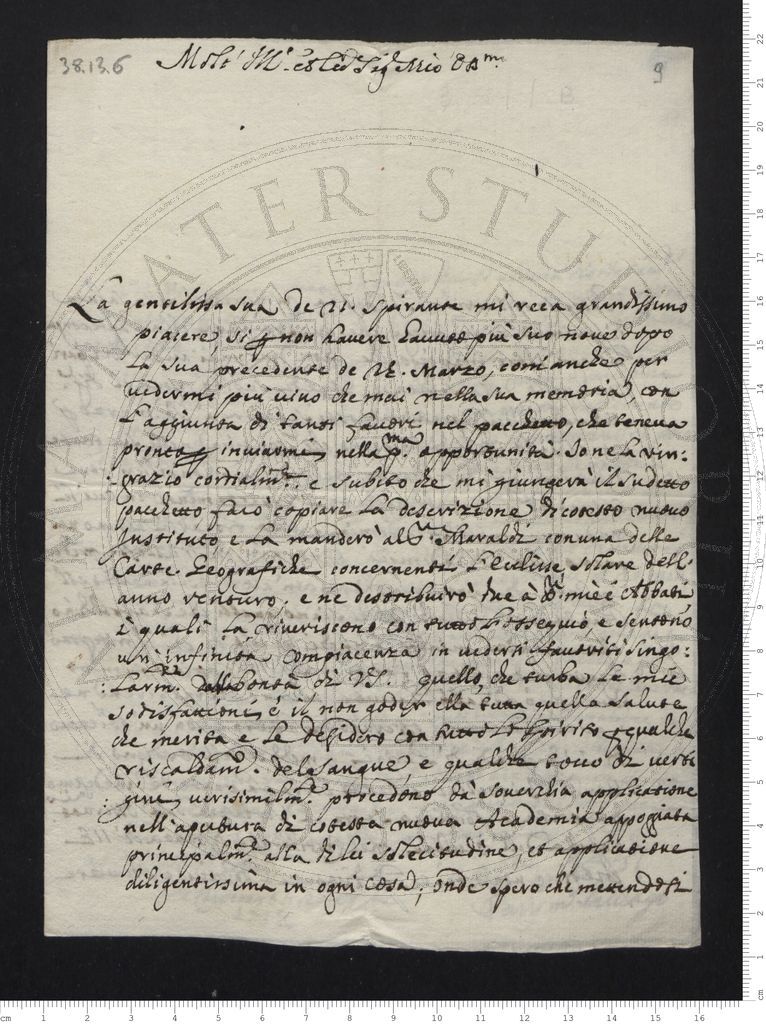 38.13.6
9
Molt' Ill.e et Sig. Mio Oss.mo
La gentilissima sua de 21. spirante mi reca grandissimo
piacere, si p non havere havute più sue nuove dopo
la sua precedente de 21. Marzo, com'anche per
vedermi più vivo che mai nella sua memoria, con
l'aggiunta di tanti favori nel pacchetto, che teneva
pronto p inviarmi, nella p.ma opportunità. Io ne la rin:
:grazio cordialm.te. e subito che mi giungerà il sudetto
pacchetto farò copiare la descrizione di cotesto nuovo
Instituto, e la manderò al S.r Maraldi con una delle
Carte Geografiche concernenti l'eclisse solare dell'
anno venturo, e ne distribuirò due à miei Abbati,
i quali la riveriscono con tutto l'ossequio, e sentono
un'infinita compiacenza in vedersi favoriti singo:
:larm.te dalla bontà di VS. quello, che turba le mie
sodisfazioni, è il non goder ella tutta quella salute
che merita e le desidero con tutto lo spirito, e qualche
riscaldam.to del sangue, e qualche tocco di verti
:gini, verisimilm.te procedono da soverchia applicatione
nell'apertura di cotesta nuova Academia appoggiata
principalm.te alla di lei sollecitudine, et applicatione
diligentissima in ogni cosa; onde spero che mettendosi
ALMA MATER STUDIORUM